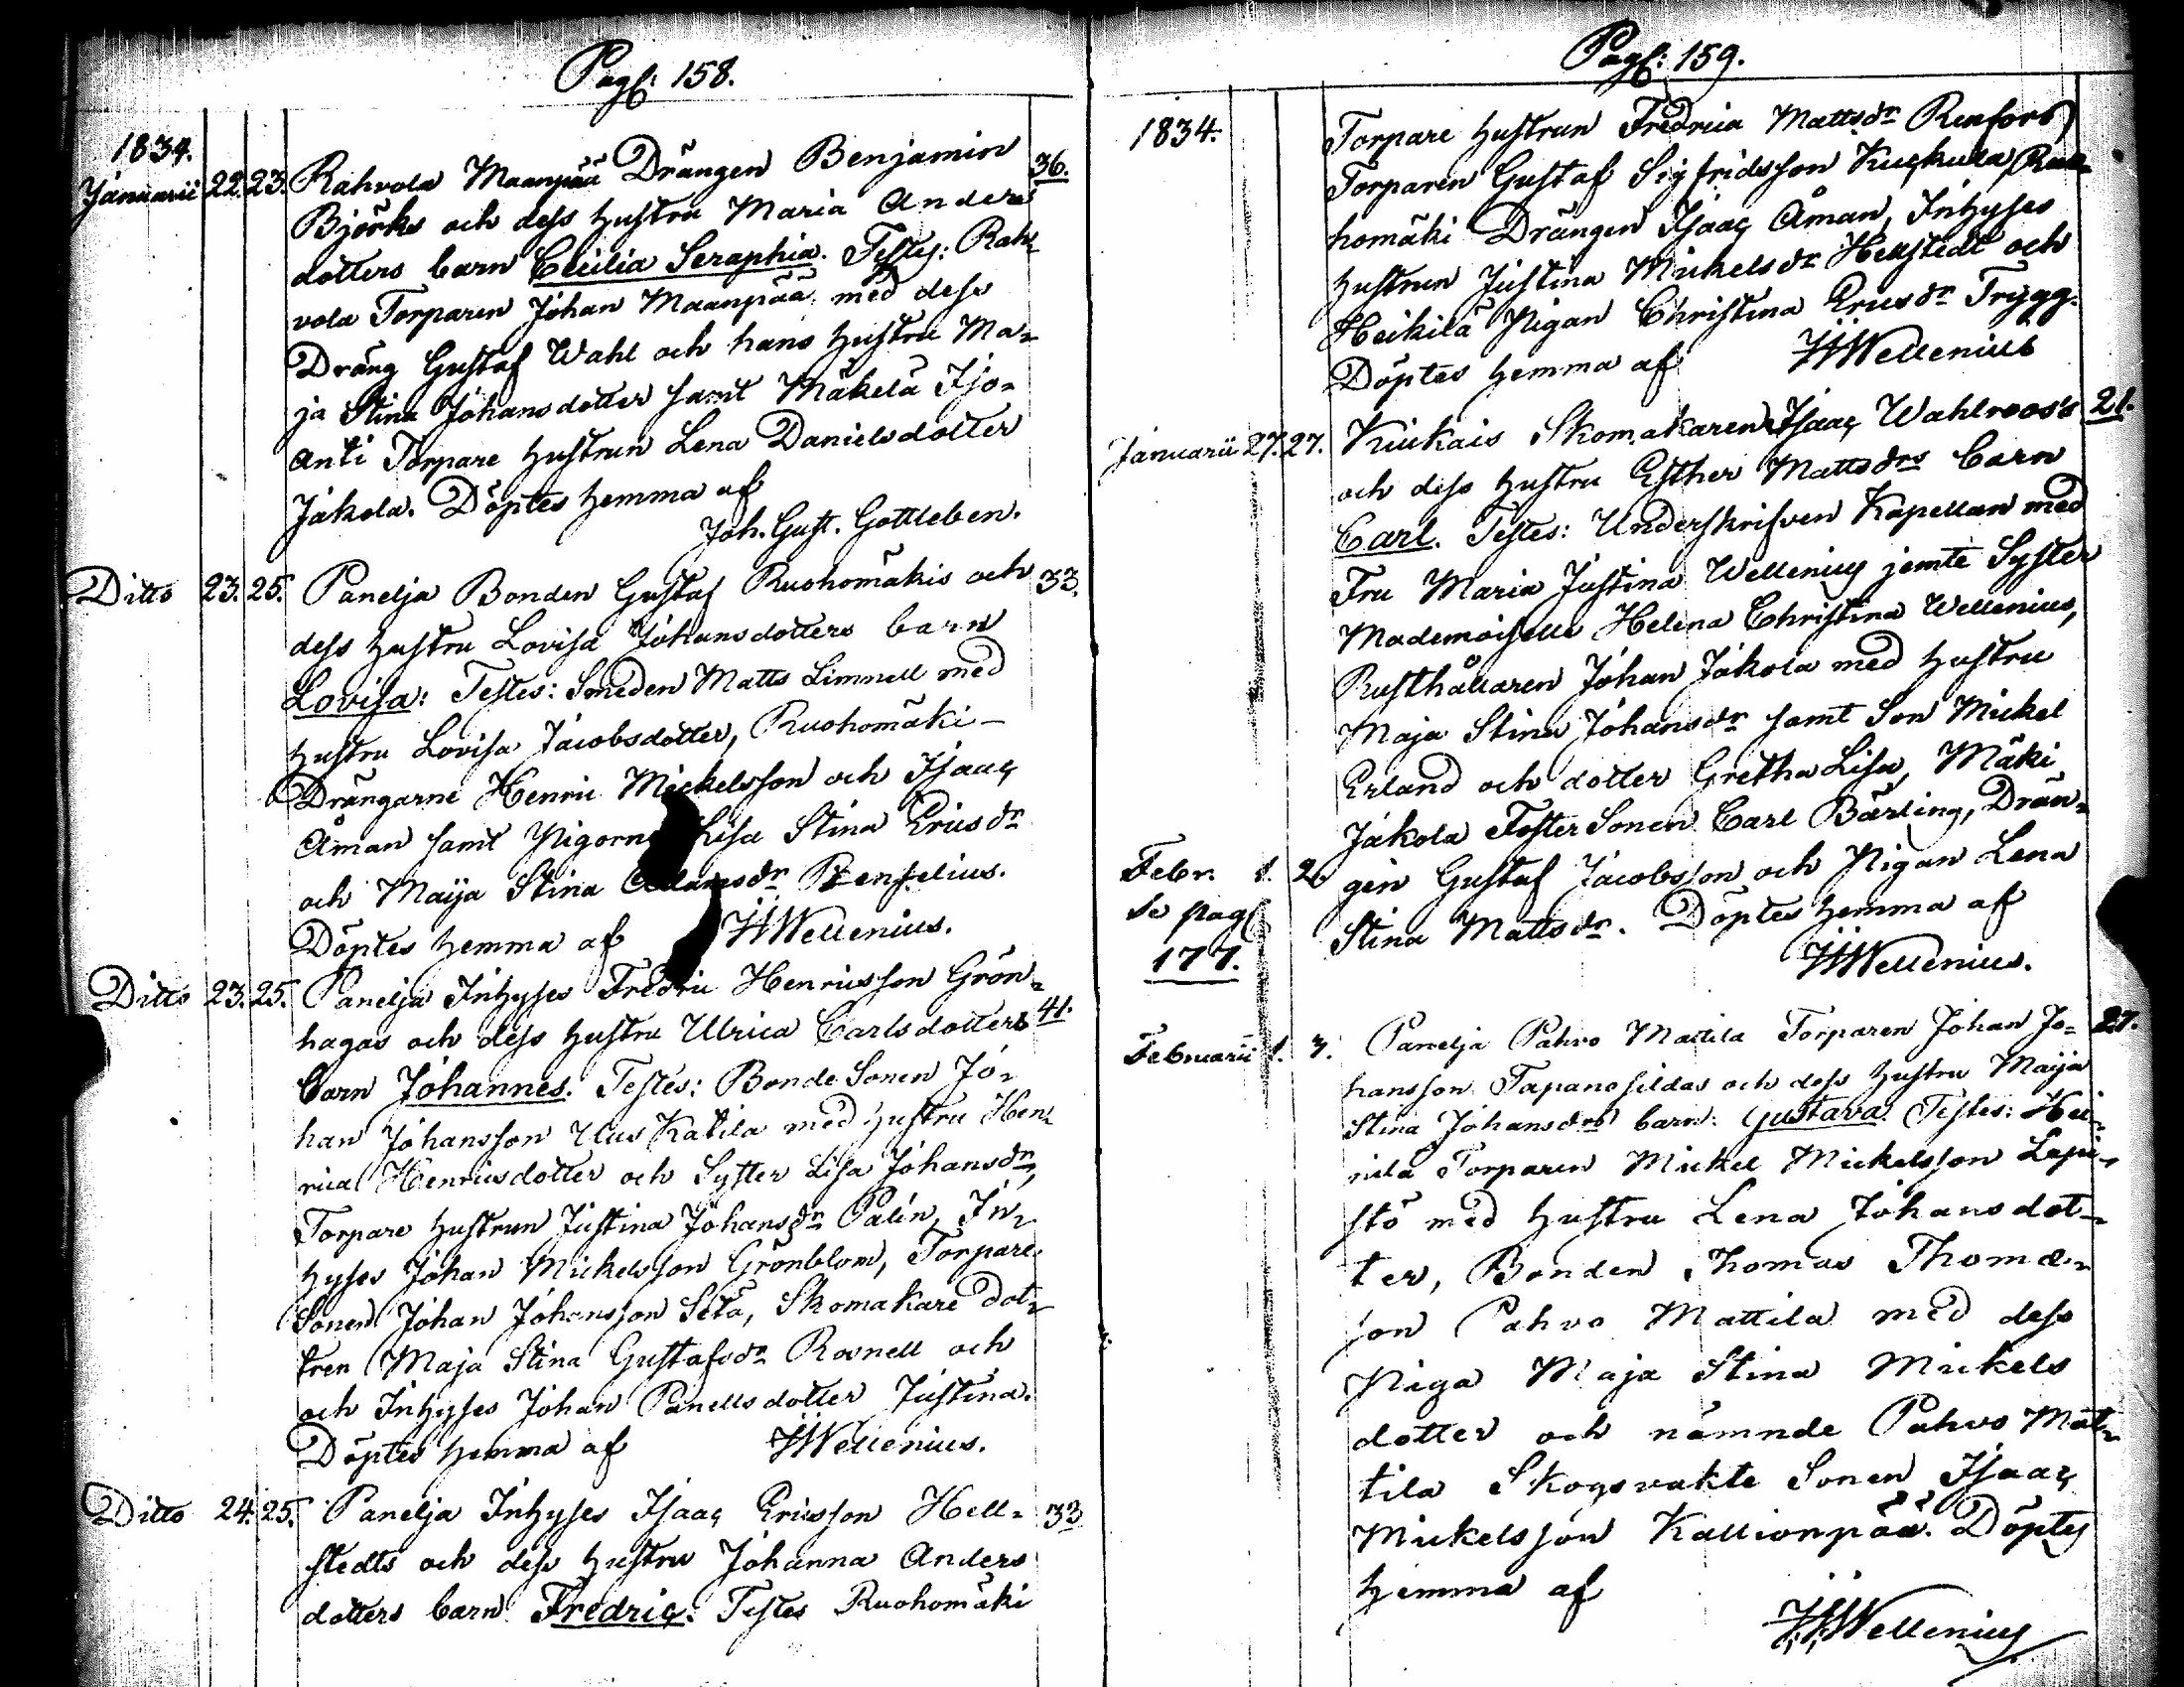 Pag: 158.
1834.
Januarii 22. 23. Rahvola Maanpää Drängen Benjamin 36.
Björks och dess hustru Maria Anders
dotters barn Cecilia Seraphia. Testes: Rah-
vola Torparen Johan Maanpää med dess
Dräng Gustaf Wahl och hans hustru Ma-
ja Stina Johansdotter samt Mäkelä Iso-
anti Torpare hustrun Lena Danielsdotter
Jäkola. Döptes hemma af
Joh. Gust. Gottleben.
Ditto 23. 25. Panelja Bonden Gustaf Ruohomäkis och 33.
dess hustru Lovisa Johansdotters barn
Lovisa: Testes: Smeden Matts Limnell med
hustru Lovisa Jacobsdotter, Ruohomäki
Drängarne Henric Mickelsson och Isaac
Åman samt Pigorne Lisa Stina Ericsdr
och Maija Stina Adamsdr
Döptes hemma af JWellenius.
Ditto 23. 25. Panelja Inhyses Fredric Henricsson Grön-
hagas och dess hustru Ulrica Carlsdotters 41.
barn Johannes. Testes: Bonde Sonen Jo-
han Johansson Uus Katila med hustru Hen-
rica Henricsdotter och Syster Lisa Johansdr,
Torpare hustrun Justina Johansdr Palin, In-
hyses Johan Mickelsson Grönblom, Torpare
Sonen Johan Johansson Seta, Skomakare dot-
tren Maja Stina Gustafsdr Rosnell och
och Inhyses Johan Panellsdotter Justina.
Döptes hemma af JWellenius.
Ditto 24. 25. Panelja Inhyses Isaac Ericsson Hell- 33
stedts och dess hustru Johanna Anders
dotters barn Fredric: Testes Ruohomäki
Pag: 159.
1834. Torpare hustrun Fredrica Mattsdr Renfors
Torparen Gustaf Sigfridsson Kuckula Ruo-
homäki Drängen Isaac Åman, Inhyses
hustrun Justina Mickelsdr Hellstedt och
Heikilä Pigan Christina Ericsdr Trygg.
Döptes hemma af JWellenius
Januarii 27. 27. Kiukais Skomakaren Isaac Wahlroos's 21.
och dess hustru Esther Mattsdrs barn
Carl. Testes: Underskrifven Kapellan med
Fru Maria Justina Wellenius jemte Syster
Mademoiselle Helena Christina Wellenius,
Rusthållaren Johan Jäkola med hustru
Maja Stina Johansdr samt Son Mickel
Erland och dotter Gretha Lisa, Mäki
Jäkola Foster Sonen Carl Bärling, Drän-
Febr. 1. 2. gen Gustaf Jacobsson och Pigan Lena
Se pag Stina Mattsdr. Döptes hemma af
177. JWellenius.
Februarii 1. 3. Panelja Pahvo Mattila Torparen Johan Jo- 27.
hansson Tapanosildas och dess hustru Maija
Stina Johansdrs barn: Gustava. Testes: Hei-
nilä Torparen Mickel Mickelsson Lepi-
stö med hustru Lena Johansdot-
ter, Bonden Thomas Thomæ-
son Pahvo Mattila med dess
Piga Maja Stina Mickels
dotter och nämnde Pahvo Mat-
tila Skogsvakte Sonen Isaac
Mickelsson Kallionpää. Döptes
hemma af
JWellenius